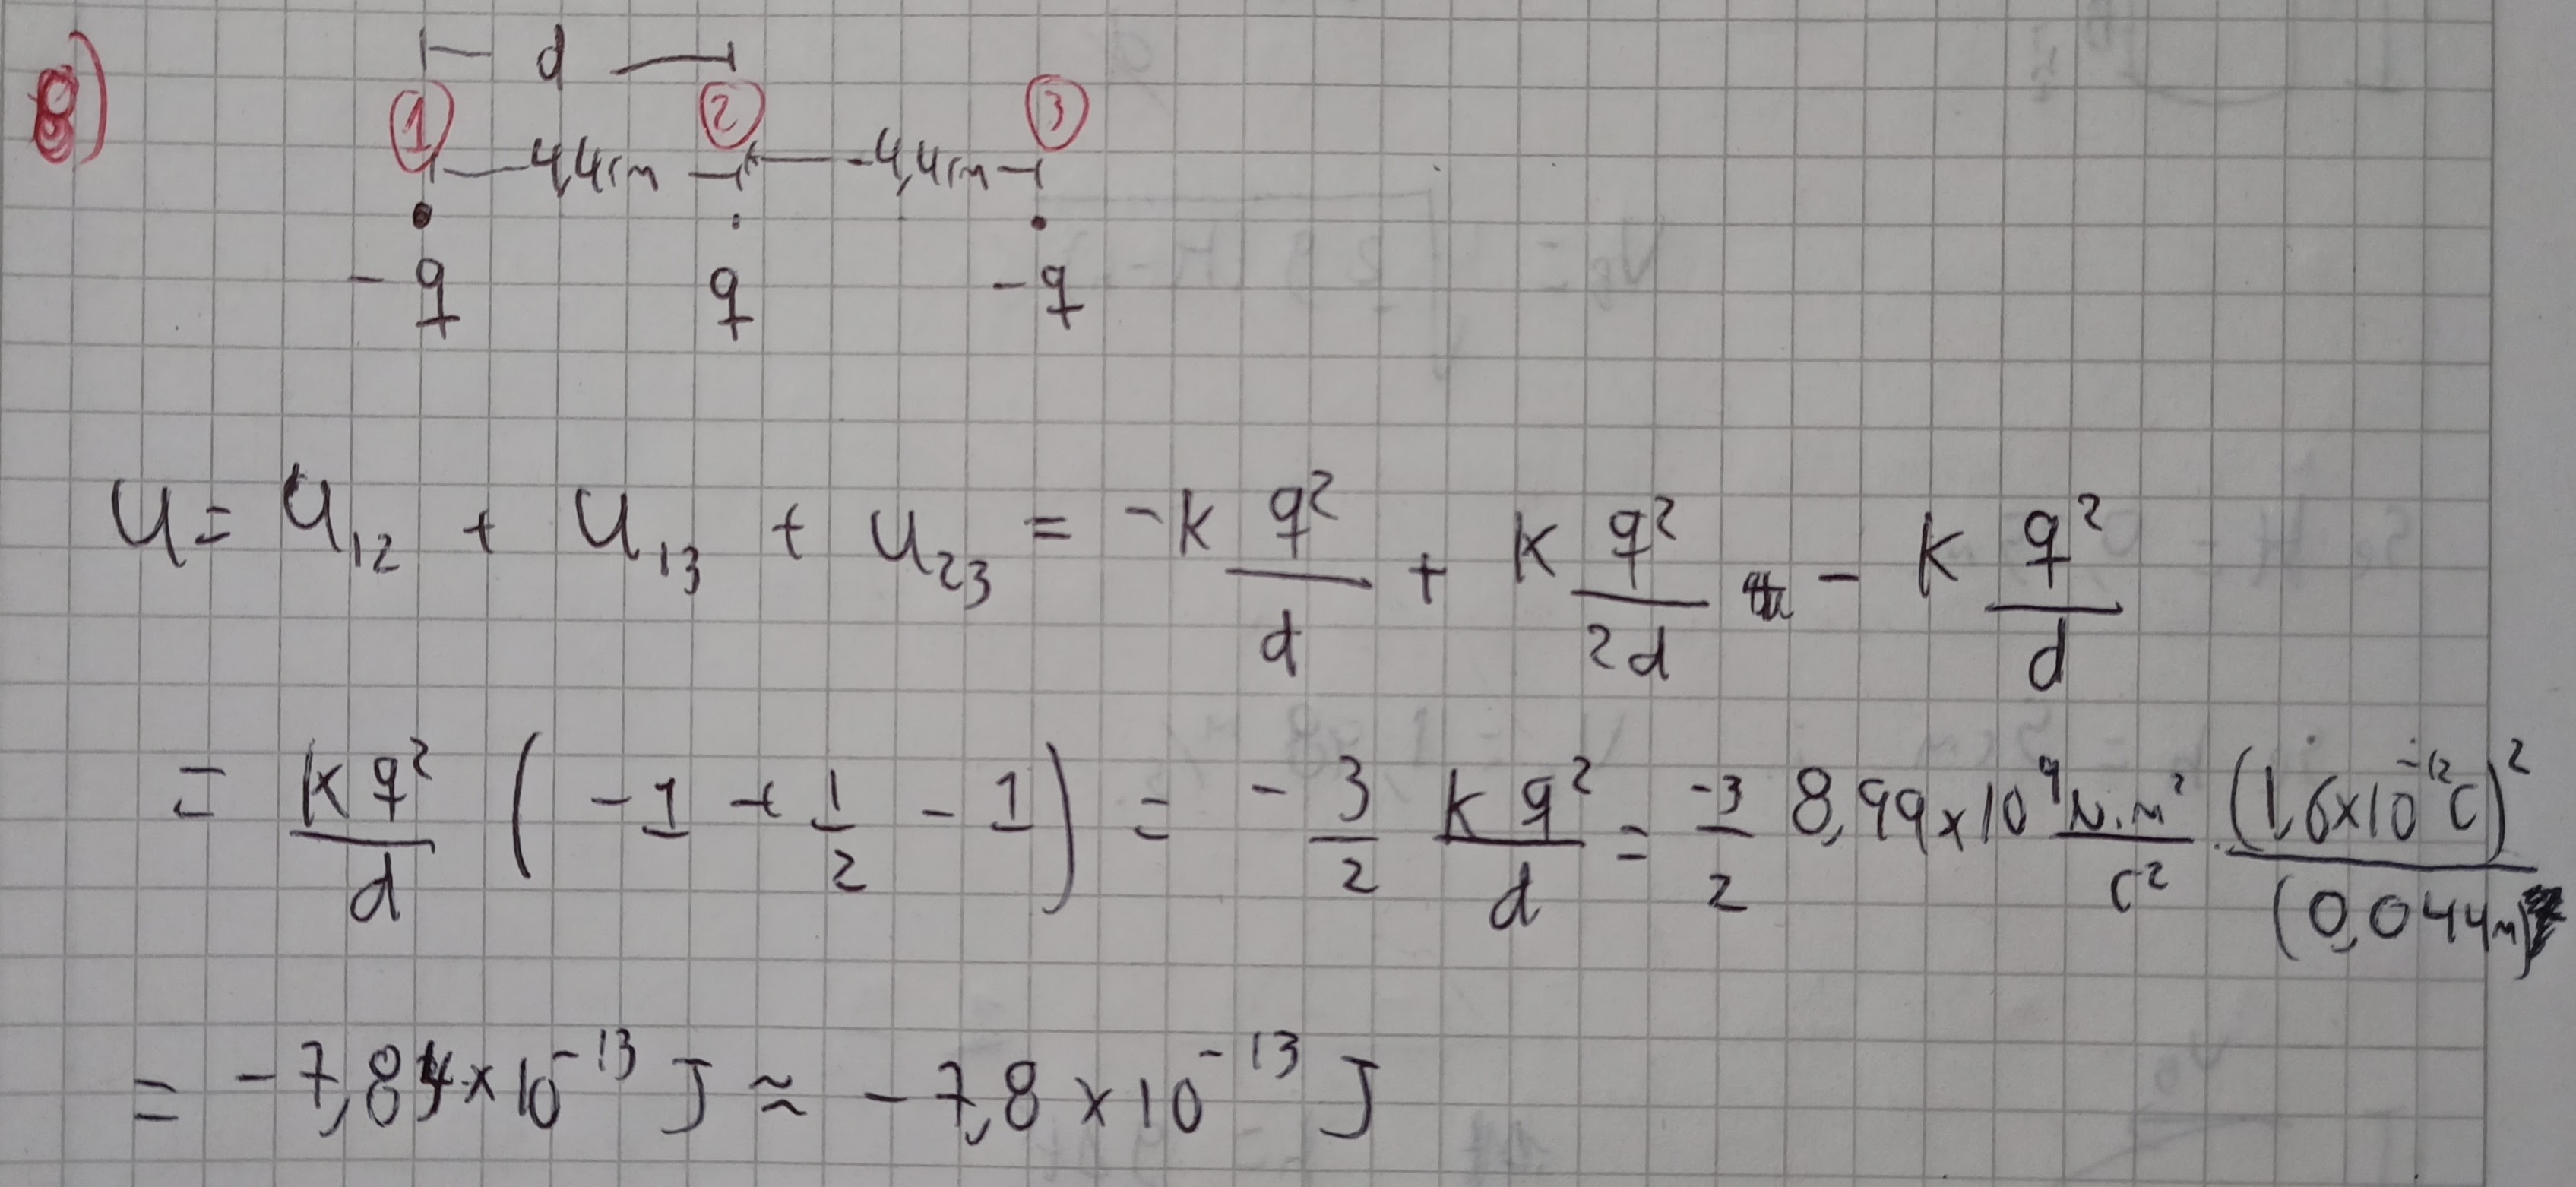 8)
d
① ② ③
4,4cm 4,4cm
-q q -q
U = U₁₂ + U₁₃ + U₂₃ = -k q²/d + k q²/2d - k q²/d
= kq²/d ( -1 + 1/2 - 1 ) = - 3/2 kq²/d = -3/2 8,99×10⁹ N.m²/C² · (1,6×10⁻¹²C)²/(0,044m)
= -7,84×10⁻¹³ J ≈ -7,8×10⁻¹³ J